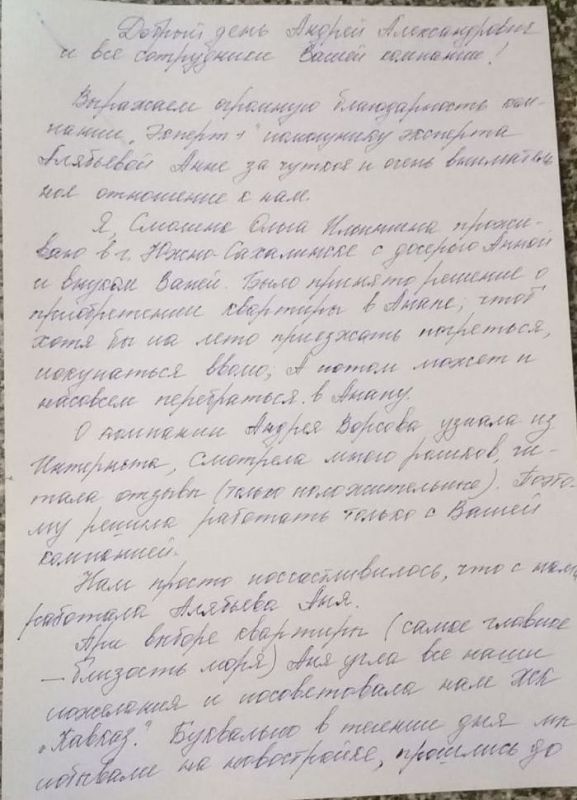 Добрый день Андрей Александрович
и все сотрудники Вашей компании!
Выражаем огромную благодарность ком-
пании „Эксперт +" помощнику эксперта
Алябьевой Анне за чуткое и очень вниматель
ное отношение к нам.
Я, Смолина Ольга Ильинична прожи-
ваю в г. Южно-Сахалинске с дочерью Анной
и внуком Ваней. Было принято решение о
приобретении квартиры в Анапе, чтоб
хотя бы на лето приезжать погреться,
покупаться вволю, А потом может и
насовсем перебраться в Анапу.
О компании Андрея Борсова узнала из
Интернета, смотрела много роликов, чи-
тала отзывы (только положительные). Поэто-
му решила работать только с Вашей
компанией.
Нам просто посчастливилось, что с нами
работала Алябьева Аня.
При выборе квартиры (самое главное
— близость моря) Аня учла все наши
пожелания и посоветовала нам ЖК
„Кавказ". Буквально в течении дня мы
побывали на новостройке, прошлись до